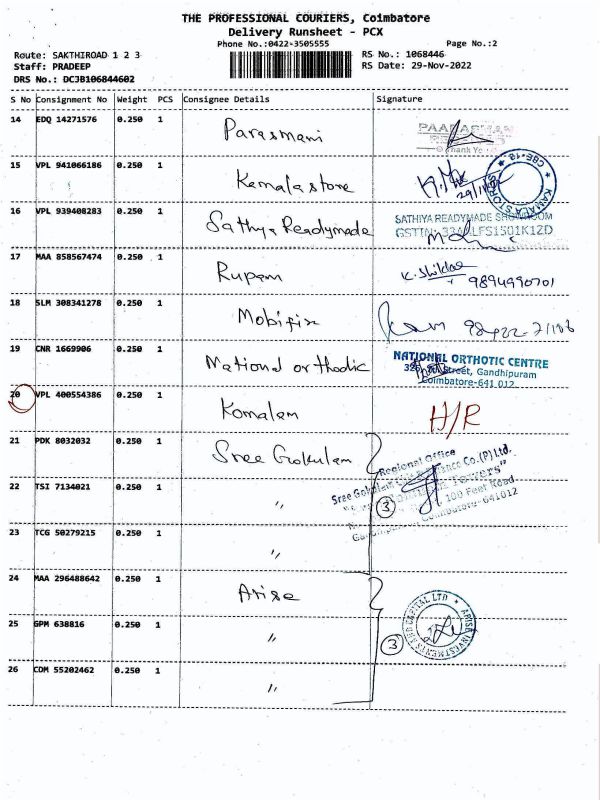 THE PROFESSIONAL COURIERS, Coimbatore
Delivery Runsheet - PCX
Phone No.:0422-3505555
Page No.:2
Route: SAKTHIROAD 1 2 3
RS No.: 1068446
Staff: PRADEEP
RS Date: 29-Nov-2022
DRS No.: DC3B106844602
S No Consignment No Weight PCS Consignee Details Signature
14 EDQ 14271576 0.250 1 Parasmani
Thank You
15 VPL 941066186 0.250 1 Kamala store
CBE-18 KAMALA STORES
16 VPL 939408283 0.250 1 Sathya Readymade
SATHIYA READYMADE SHOWROOM
17 MAA 858567474 0.250 1 Rupam
9894990701
18 SLM 308341278 0.250 1 Mobifix
19 CNR 1669906 0.250 1 National orthodic
NATIONAL ORTHOTIC CENTRE
Street, Gandhipuram
Coimbatore-641 012
20 VPL 400554386 0.250 1 Komalam H/R
21 PDK 8032032 0.250 1 Sree Gokulam
Regional Office
Co.(P)Ltd.
Towers"
100 Feet Road
Coimbatore-641012
3
22 TSI 7134021 0.250 1 "
23 TCG 50279215 0.250 1 "
24 MAA 296488642 0.250 1 Arise
ARISE INVESTMENTS AND CAPITAL LTD
25 GPM 638816 0.250 1 "
3
26 COM 55202462 0.250 1 "